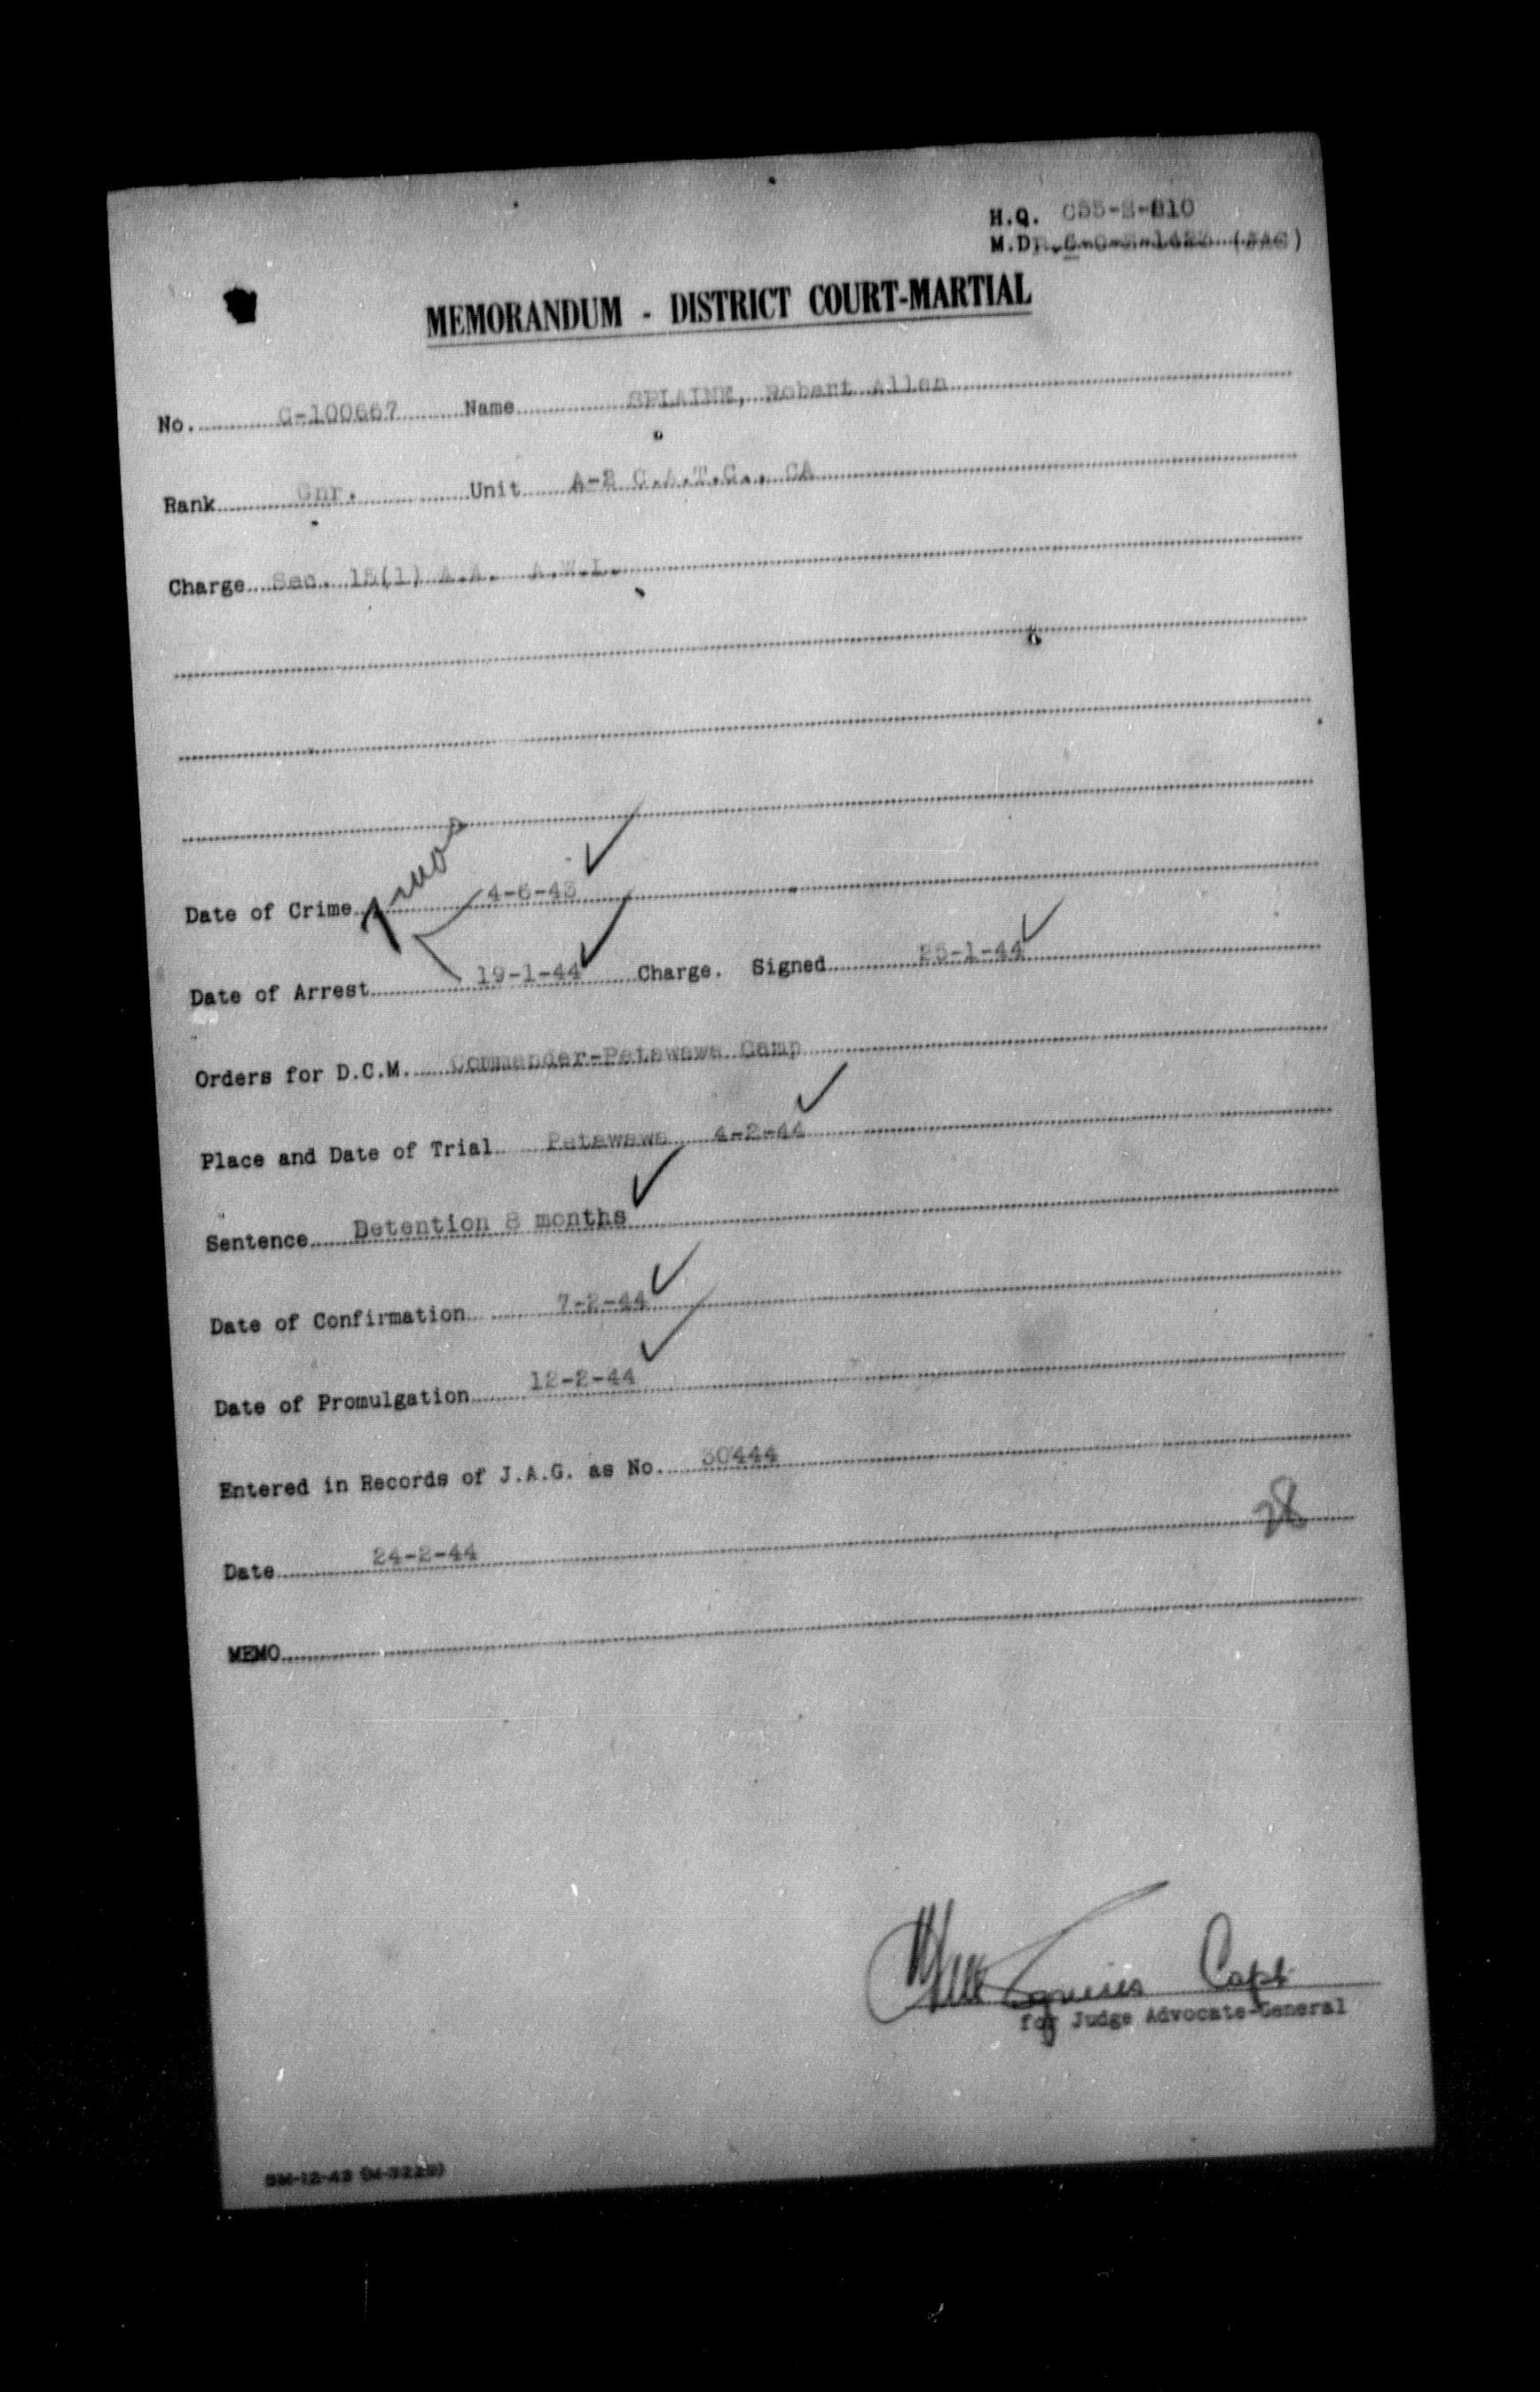 H.Q. C55-S-810
M.D.
MEMORANDUM - DISTRICT COURT-MARTIAL
No. C-100667 Name SPLAINE, Robert Allen
Rank Gnr. Unit A-2 C.A.T.C., CA
Charge Sec. 15(1) A.A. A.W.L.
7 mos
Date of Crime 4-6-43
Date of Arrest 19-1-44 Charge. Signed 25-1-44
Orders for D.C.M. Commander-Petawawa Camp
Place and Date of Trial Petawawa 4-2-44
Sentence Detention 8 months
Date of Confirmation 7-2-44
Date of Promulgation 12-2-44
Entered in Records of J.A.G. as No. 30444
28
Date 24-2-44
MEMO
Squires Capt
for Judge Advocate-General
5M-12-43 (M-3229)